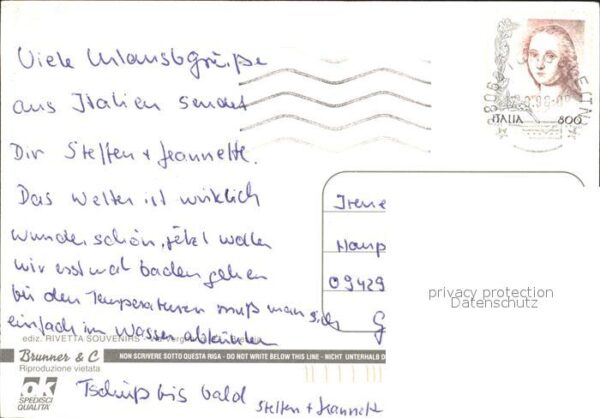 Viele Urlaubsgrüße
aus Italien sendet
Dir Steffen + Jeannette.
Das Wetter ist wirklich
wunderschön, jetzt wollen
wir erst mal baden gehen
bei den Temperaturen muß man sich
einfach im Wasser abkühlen
Tschüß bis bald
Steffen + Jeannette
ITALIA 800
Irene
Haup
09429
G
privacy protection
Datenschutz
ediz. RIVETTA SOUVENIRS
Brunner & C
Riproduzione vietata
NON SCRIVERE SOTTO QUESTA RIGA - DO NOT WRITE BELOW THIS LINE - NICHT UNTERHALB D
OK
SPEDISCI
QUALITA'